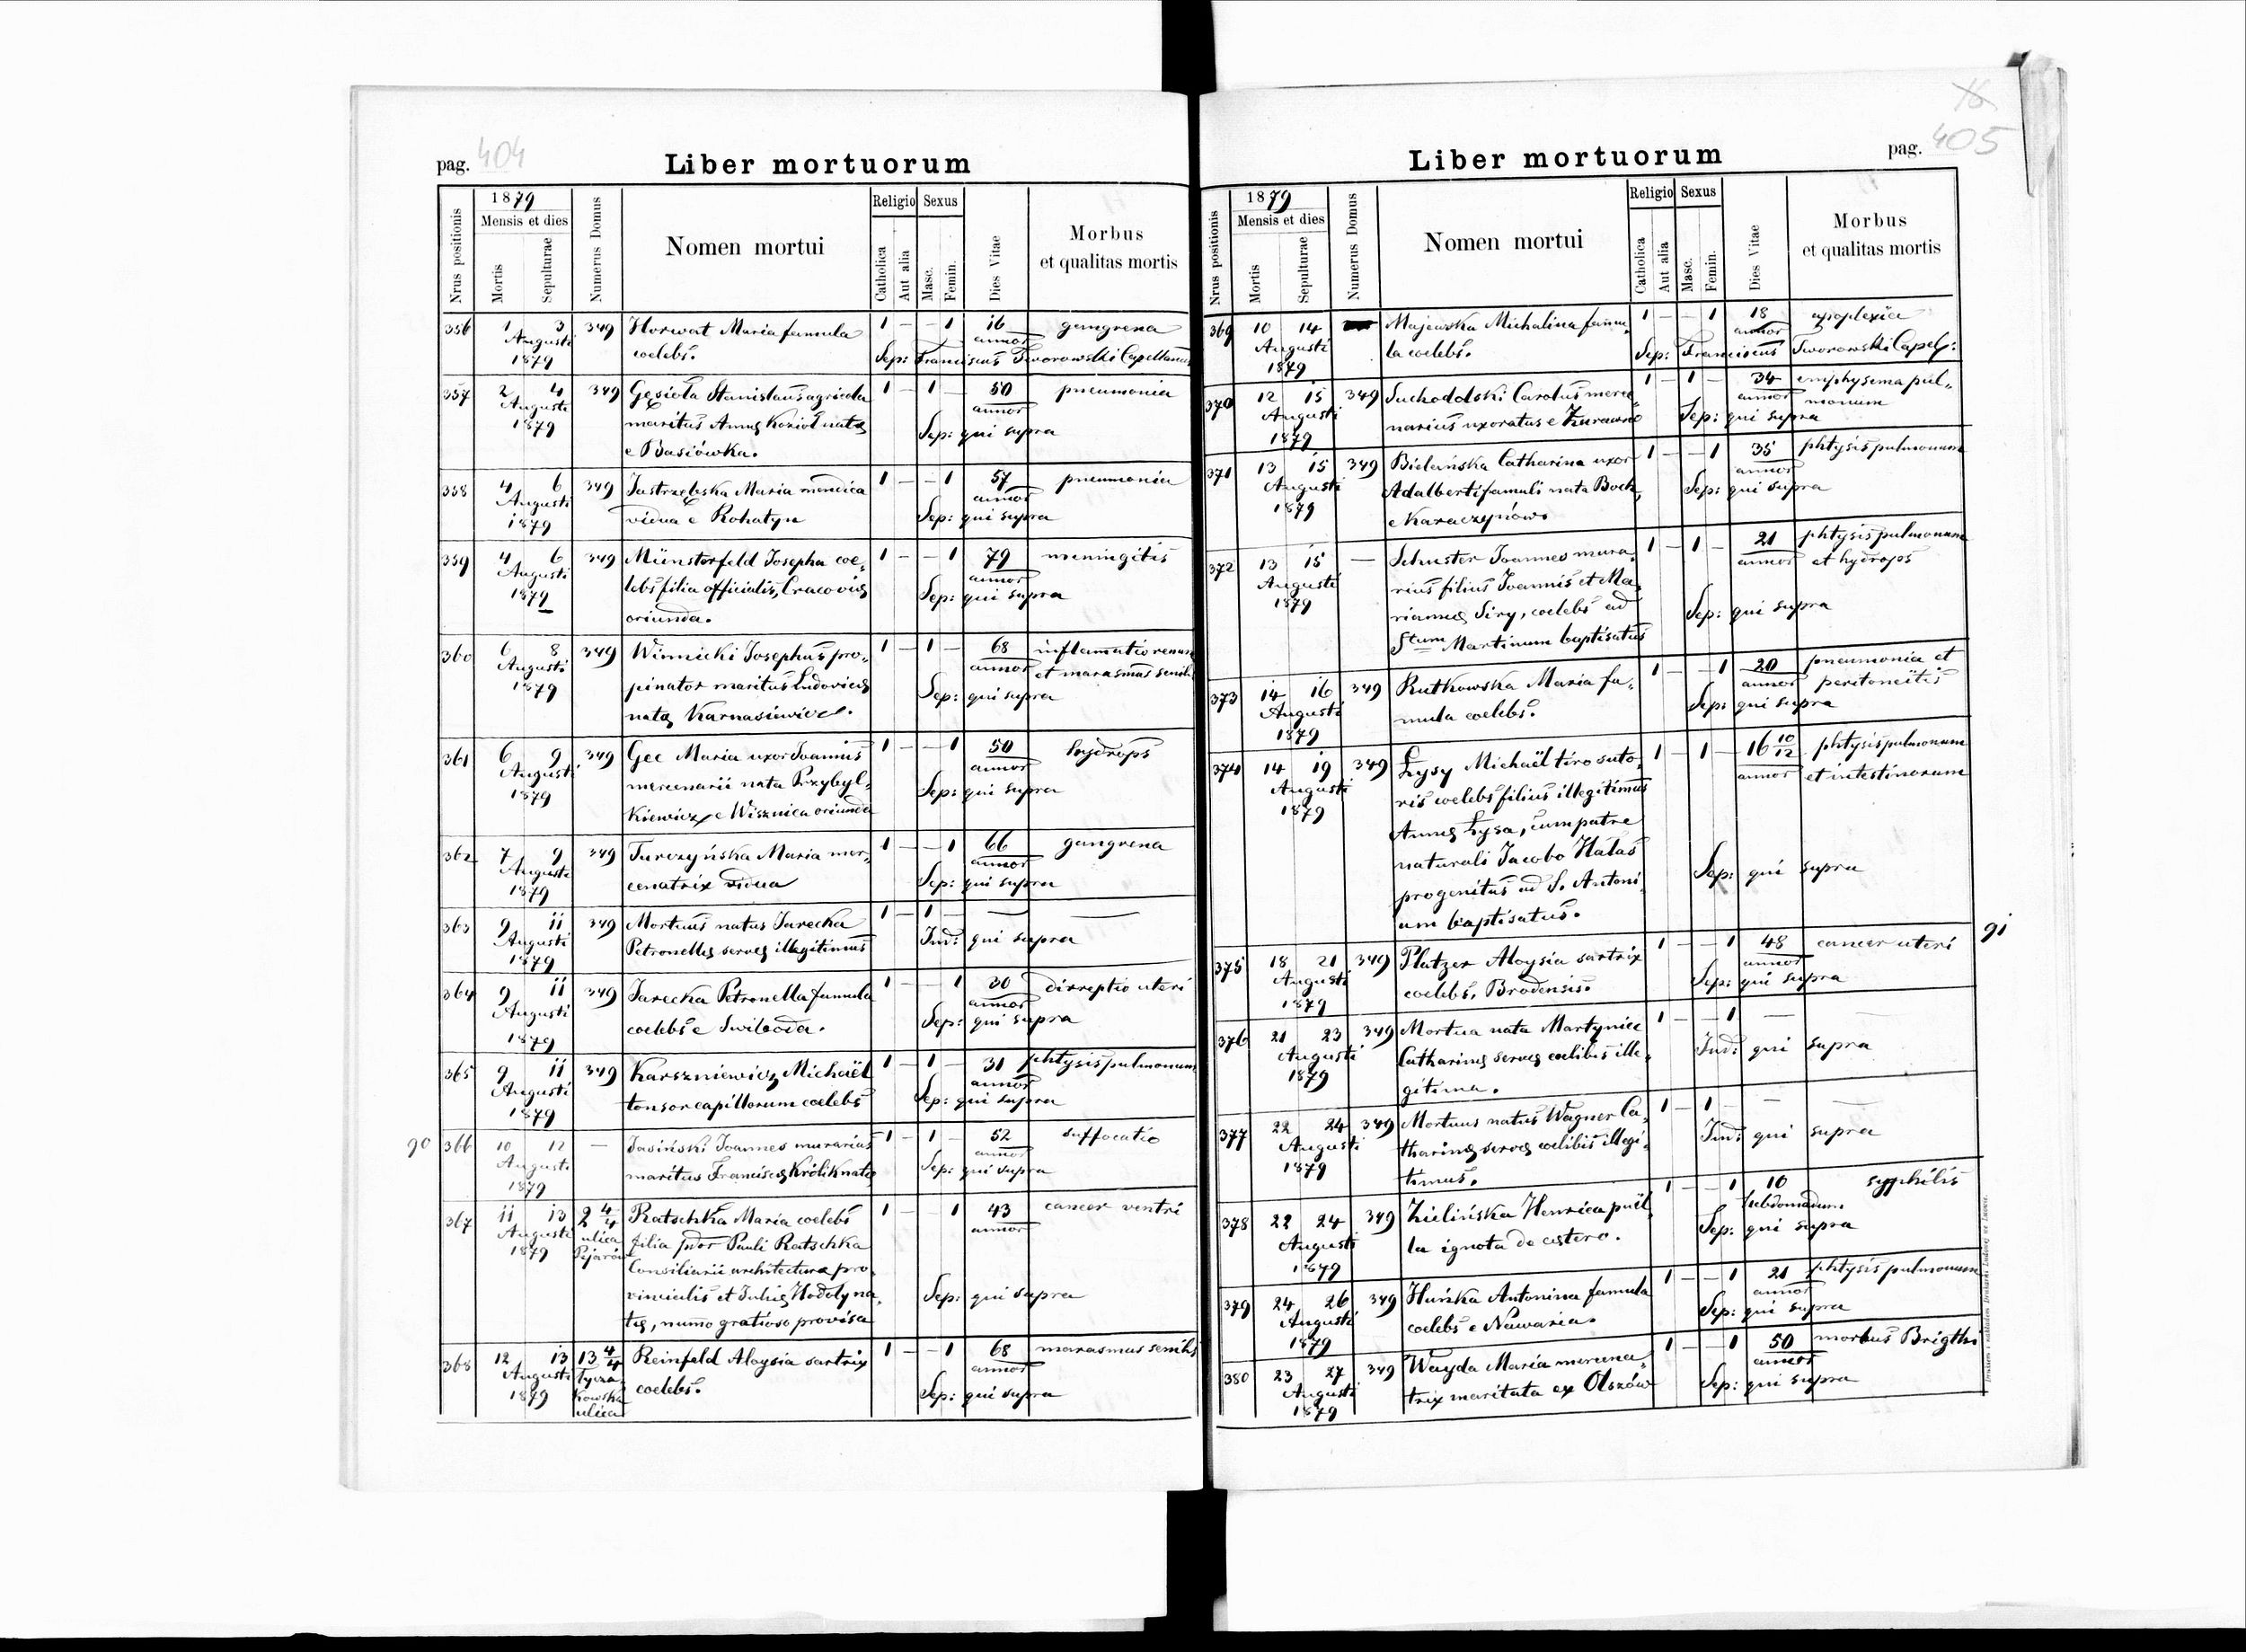 pag. 404
Liber mortuorum
Nrus positionis
1879
Mensis et dies
Mortis
Sepulturae
Numerus Domus
Nomen mortui
Religio
Catholica
Aut alia
Sexus
Masc.
Femin.
Dies Vitae
Morbus
et qualitas mortis
356 1 3 349 Horwat Maria famula 1 — — 1 16 gangrena
Augusti coelebs. annor
1879 Sep: Franciscus Tworowski Capellanus
357 2 4 349 Gęsiola Stanislaus agricola 1 — 1 — 50 pneumonia
Augusti maritus Annę Kozioł natę annor
1879 e Basiówka. Sep: qui supra
358 4 6 349 Jastrzębska Maria mendica 1 — — 1 57 pneumonia
Augusti vidua e Rohatyn annor
1879 Sep: qui supra
359 4 6 349 Münsterfeld Josepha coe, 1 — — 1 79 meningitis
Augusti lebs filia officialis, Cracovię annor
1879 oriunda. Sep: qui supra
360 6 8 349 Winnicki Josephus pro, 1 — 1 — 68 inflamatio renum
Augusti pinator maritus Ludovicę annor et marasmus senilis
1879 natę Karnasiewicz. Sep: qui supra
361 6 9 349 Gec Maria uxor Joannis 1 — — 1 50 hydrops
Augusti mercenarii nata Przybyl, annor
1879 kiewicz e Wisznica oriunda Sep: qui supra
362 7 9 349 Turczyńska Maria mer, 1 — — 1 66 gangrena
Augusti cenatrix vidua annor
1879 Sep: qui supra
363 9 11 349 Mortuus natus Jarecka 1 — 1 — — —
Augusti Petronellę servę illegitimus
1879 Ind: qui supra
364 9 11 349 Jarecka Petronella famula 1 — — 1 30 dirreptio uteri
Augusti coelebs e Swiboda. annor
1879 Sep: qui supra
365 9 11 349 Karszniewicz Michaël 1 — 1 — 31 phtysis pulmonum
Augusti tonsor capillorum coelebs annor
1879 Sep: qui supra
90 366 10 12 — Jasiński Joannes murarius 1 — 1 — 52 suffocatio
Augusti maritus Franciscę Królik natę annor
1879 Sep: qui supra
367 11 13 2 4/4 Ratschka Maria coelebs 1 — — 1 43 cancer ventri
Augusti ulica filia pdor Pauli Ratschka annor
1879 Pijarów Consiliarii architectura pro,
vincialis et Julię Hodoly na,
tę, numo gratioso provisa Sep: qui supra
368 12 13 13 4/4 Reinfeld Aloysia sartrix 1 — — 1 68 marasmus senilis
Augusti Łycza, coelebs. annor
1879 kowska Sep: qui supra
ulica
pag. 405
Liber mortuorum
Nrus positionis
1879
Mensis et dies
Mortis
Sepulturae
Numerus Domus
Nomen mortui
Religio
Catholica
Aut alia
Sexus
Masc.
Femin.
Dies Vitae
Morbus
et qualitas mortis
369 10 14 Majewska Michalina famu, 1 — — 1 18 apoplexia
Augusti la coelebs. annor
1879 Sep: Franciscus Tworowski Capel:
370 12 15 349 Suchodolski Carolus merce, 1 — 1 — 34 emphysema pul,
Augusti narius uxoratus e Żurawno annor monum
1879 Sep: qui supra
371 13 15 349 Bielańska Catharina uxor 1 — — 1 35 phtysis pulmonum
Augusti Adalberti famuli nata Bock, annor
1879 e Karaczynów. Sep: qui supra
372 13 15 — Schuster Joannes mura, 1 — 1 — 21 phtysis pulmonum
Augusti rius filius Joannis et Ma, annor et hydrops
1879 riannę Siry, coelebs ad Sep: qui supra
Stum Martinum baptisatus
373 14 16 349 Rutkowska Maria fa, 1 — — 1 20 pneumonia et
Augusti mula coelebs. annor peritoneitis
1879 Sep: qui supra
374 14 19 349 Łysy Michaël tiro suto, 1 — 1 — 16 10/12 phtysis pulmonum
Augusti ris coelebs filius illegitimus annor et intestinorum
1879 Annę Łysa, cum patre
naturali Jacobo Hałas
progenitus ad S. Antoni, Sep: qui supra
um baptisatus.
375 18 21 349 Platzer Aloysia sartrix 1 — — 1 48 cancer uteri 91
Augusti coelebs, Brodensis. annor
1879 Sep: qui supra
376 21 23 349 Mortua nata Martyniec 1 — — 1 — —
Augusti Catharinę servę coelibis ille,
1879 gitima. Ind: qui supra
377 22 24 349 Mortuus natus Wagner Ca, 1 — 1 — — —
Augusti tharinę servę coelibis illegi,
1879 timus. Ind: qui supra
378 22 24 349 Zielińska Henrica puël, 1 — — 1 10 syphilis
Augusti la ignota de cetero. hebdomadum
1879 Sep: qui supra
379 24 26 349 Huńka Antonina famula 1 — — 1 21 phtysis pulmonum
Augusti coelebs e Nawaria. annor
1879 Sep: qui supra
380 23 27 349 Wayda Maria mercena, 1 — — 1 50 morbus Brigthi
Augusti trix maritata ex Olszów annor
1879 Sep: qui supra